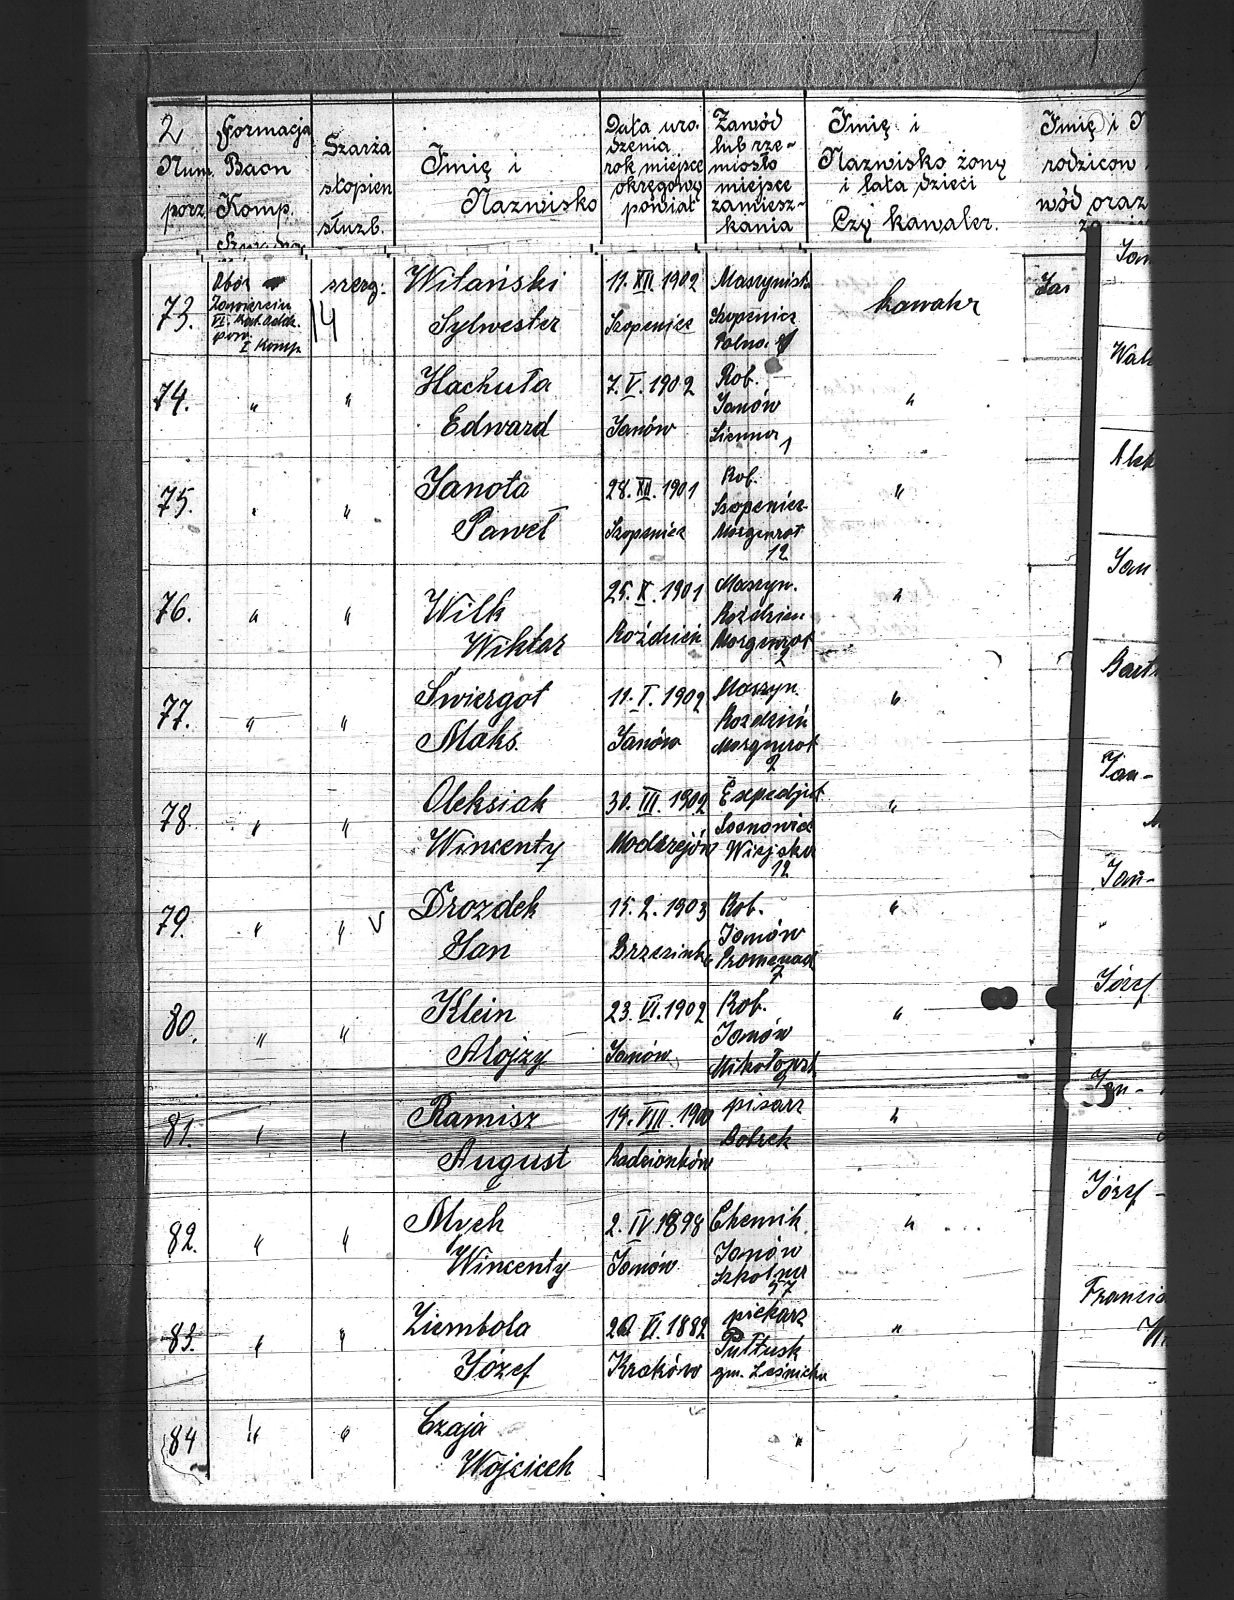 2
Num.
porz
Formacja
Baon
Komp.
Szarża
stopien
służb.
Imię i
Nazwisko
Data uro.
dzenia
rok miejsce
okręgowy
powiat
Zawód
lub rze-
miosło
miejsce
zamiesz-
kania
Imię i
Nazwisko żony
i lata dzieci
Czy kawaler.
Imię i N
rodzicow
wód oraz
73.
Obóz
Zawiercin
I Komp.
szerg.
14
Witański
Sylwester
11. XII. 1902
Szopenice
Maszynist
Szopenice
Polna.
kawaler
Jan
74.
"
"
Hachuła
Edward
7. V. 1902
Janów
Rob.
Janów
1
"
75.
"
"
Janota
Paweł
28. XII. 1901
Szopenice
Rob.
Szopenice
Morgenrot
12
"
76.
"
"
Wilk
Wiktor
25. X. 1901
Roździeń
Maszyn.
Roździen
Morgenrot
2
"
Jan
77.
"
"
Swiergot
Maks.
11. I. 1902
Janów
Maszyn.
Rozdzień
Morgenrot
2
"
78.
"
"
Oleksiak
Wincenty
30. III. 1902
Modrzejów
Expedjet
Sosnowice
Wiejska
12
"
Jan-
79.
"
"
Drozdek
Jan
15. 2. 1903
Brzezinka
Rob.
Janów
Promenad
7
"
Jan-
80.
"
"
Klein
Alojzy
23. VI. 1902
Janów
Rob.
Janów
"
Józef
81.
"
"
Ramisz
August
14. VIII. 190
Radzionków
pisarz
Bobrek
"
Jan-
82.
"
"
Mych
Wincenty
2. IV 1898
Janów
Chemik
Janów
Szkolna
57
"
Józef -
83.
"
"
Ziembola
Józef
VI. 1882
Kraków
piekarz
Pułtusk
gm. Leśnicka
"
84
"
"
Czaja
Wojciech
"